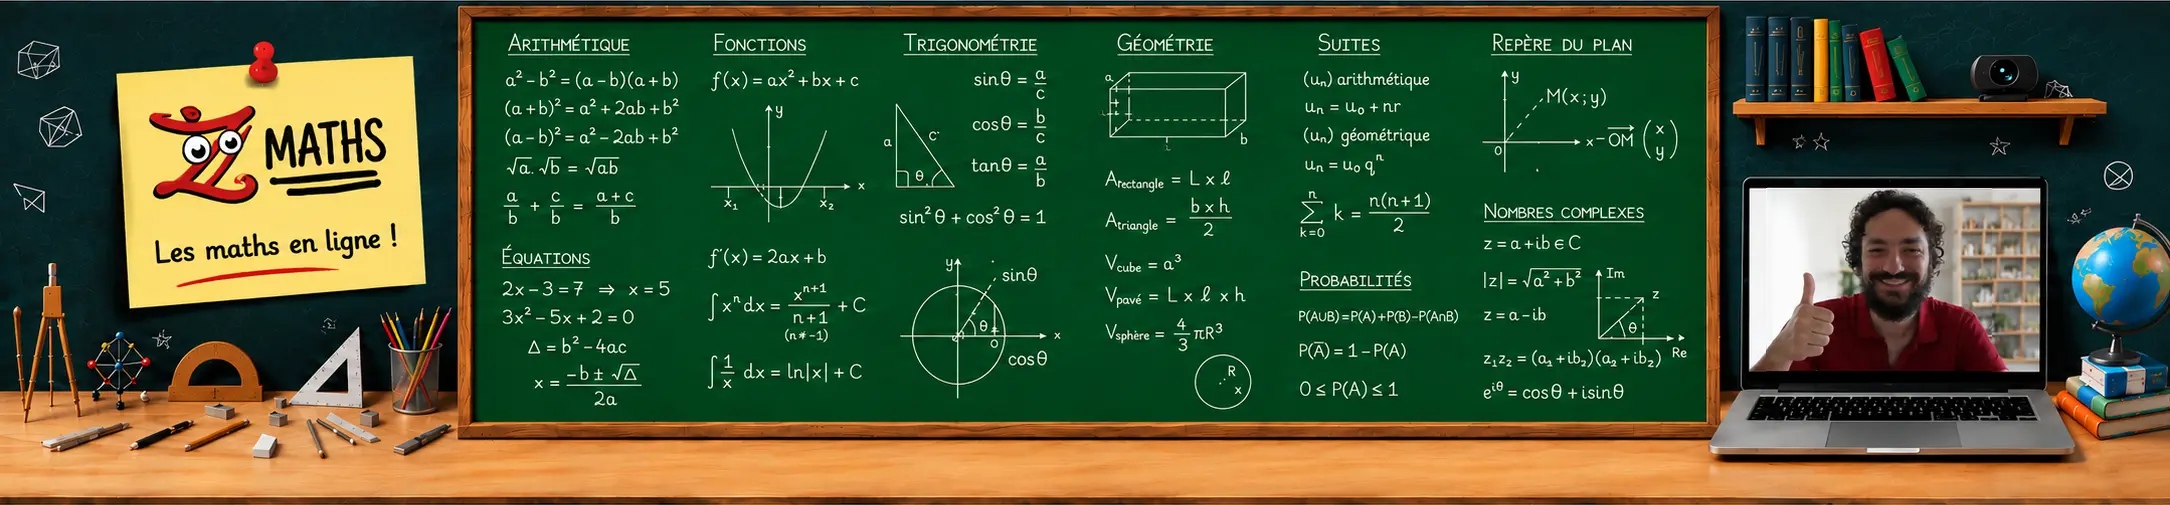 MATHS
Les maths en ligne !
ARITHMÉTIQUE
a² – b² = (a – b)(a + b)
(a + b)² = a² + 2ab + b²
(a – b)² = a² – 2ab + b²
√a. √b = √ab
a/b + c/b = a + c/b
ÉQUATIONS
2x – 3 = 7 ⇒ x = 5
3x² – 5x + 2 = 0
Δ = b² – 4ac
x = –b ± √Δ / 2a
FONCTIONS
f(x) = ax² + bx + c
y
x
x₁
x₂
f'(x) = 2ax + b
∫ xⁿ dx = xⁿ⁺¹/n+1 + C
(n ≠ –1)
∫ 1/x dx = ln|x| + C
TRIGONOMÉTRIE
sinθ = a/c
cosθ = b/c
tanθ = a/b
a
c
θ
sin² θ + cos² θ = 1
y
sinθ
θ
x
0
cosθ
GÉOMÉTRIE
a
b
Arectangle = L x ℓ
Atriangle = b x h / 2
Vcube = a³
Vpavé = L x ℓ x h
Vsphère = 4/3 πR³
R
x
SUITES
(uₙ) arithmétique
uₙ = u₀ + nr
(uₙ) géométrique
uₙ = u₀ qⁿ
n ∑ k=0 k = n(n+1)/2
PROBABILITÉS
P(A∪B)=P(A)+P(B)–P(A∩B)
P(A̅) = 1 – P(A)
0 ≤ P(A) ≤ 1
REPÈRE DU PLAN
y
M(x ; y)
0
x – OM (x y)
NOMBRES COMPLEXES
z = a + ib ∈ C
|z| = √a² + b²
z = a – ib
z₁z₂ = (a₁ + ib₂)(a₂ + ib₂)
e^iθ = cosθ + isinθ
Im
z
θ
Re